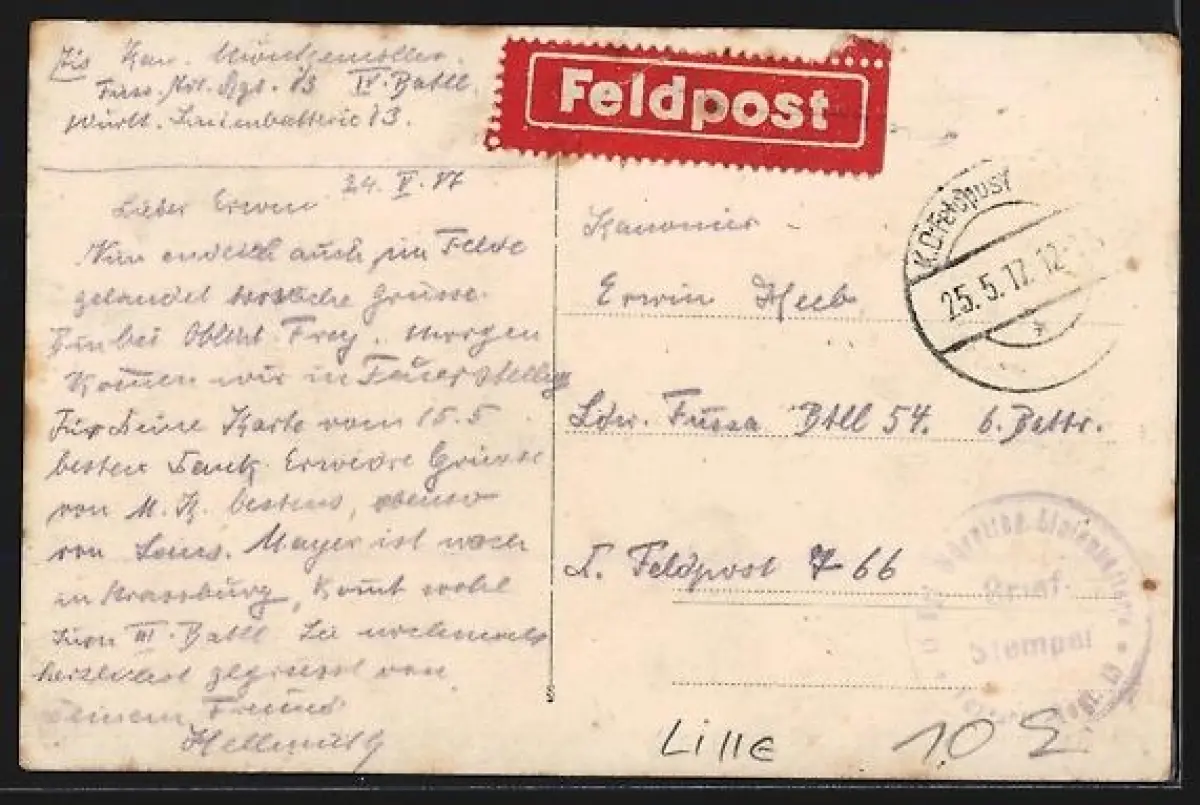 Kan.
Fuss. Art. Rgt. 13 IV. Batll.
Württ. 13.
Feldpost
24. V. 17
Lieber Erwin
Nun endlich auch im Felde
gelandet herzliche Grüsse.
Bin bei Frey. Morgen
kommen wir in Feuerstellung
Für Deine Karte vom 15.5
besten Dank. Erwidre Grüsse
von M. K. bestens, ebenso
von Mayer ist noch
in Strassburg, komt wohl
zum III. Batll. Sei nochmals
herzlichst gegrüsst von
Deinem Freund
Hellmuth
K.D. Feldpost
25.5.17. 12
Kanonier
Erwin Heeb
Ldw. Fussa Btll 54. 6. Battr.
Feldpost 766
Brief-
Stempel
Lille
10